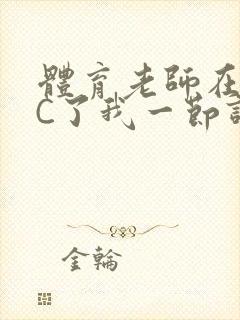 體育老師在
C了我一節
金輪